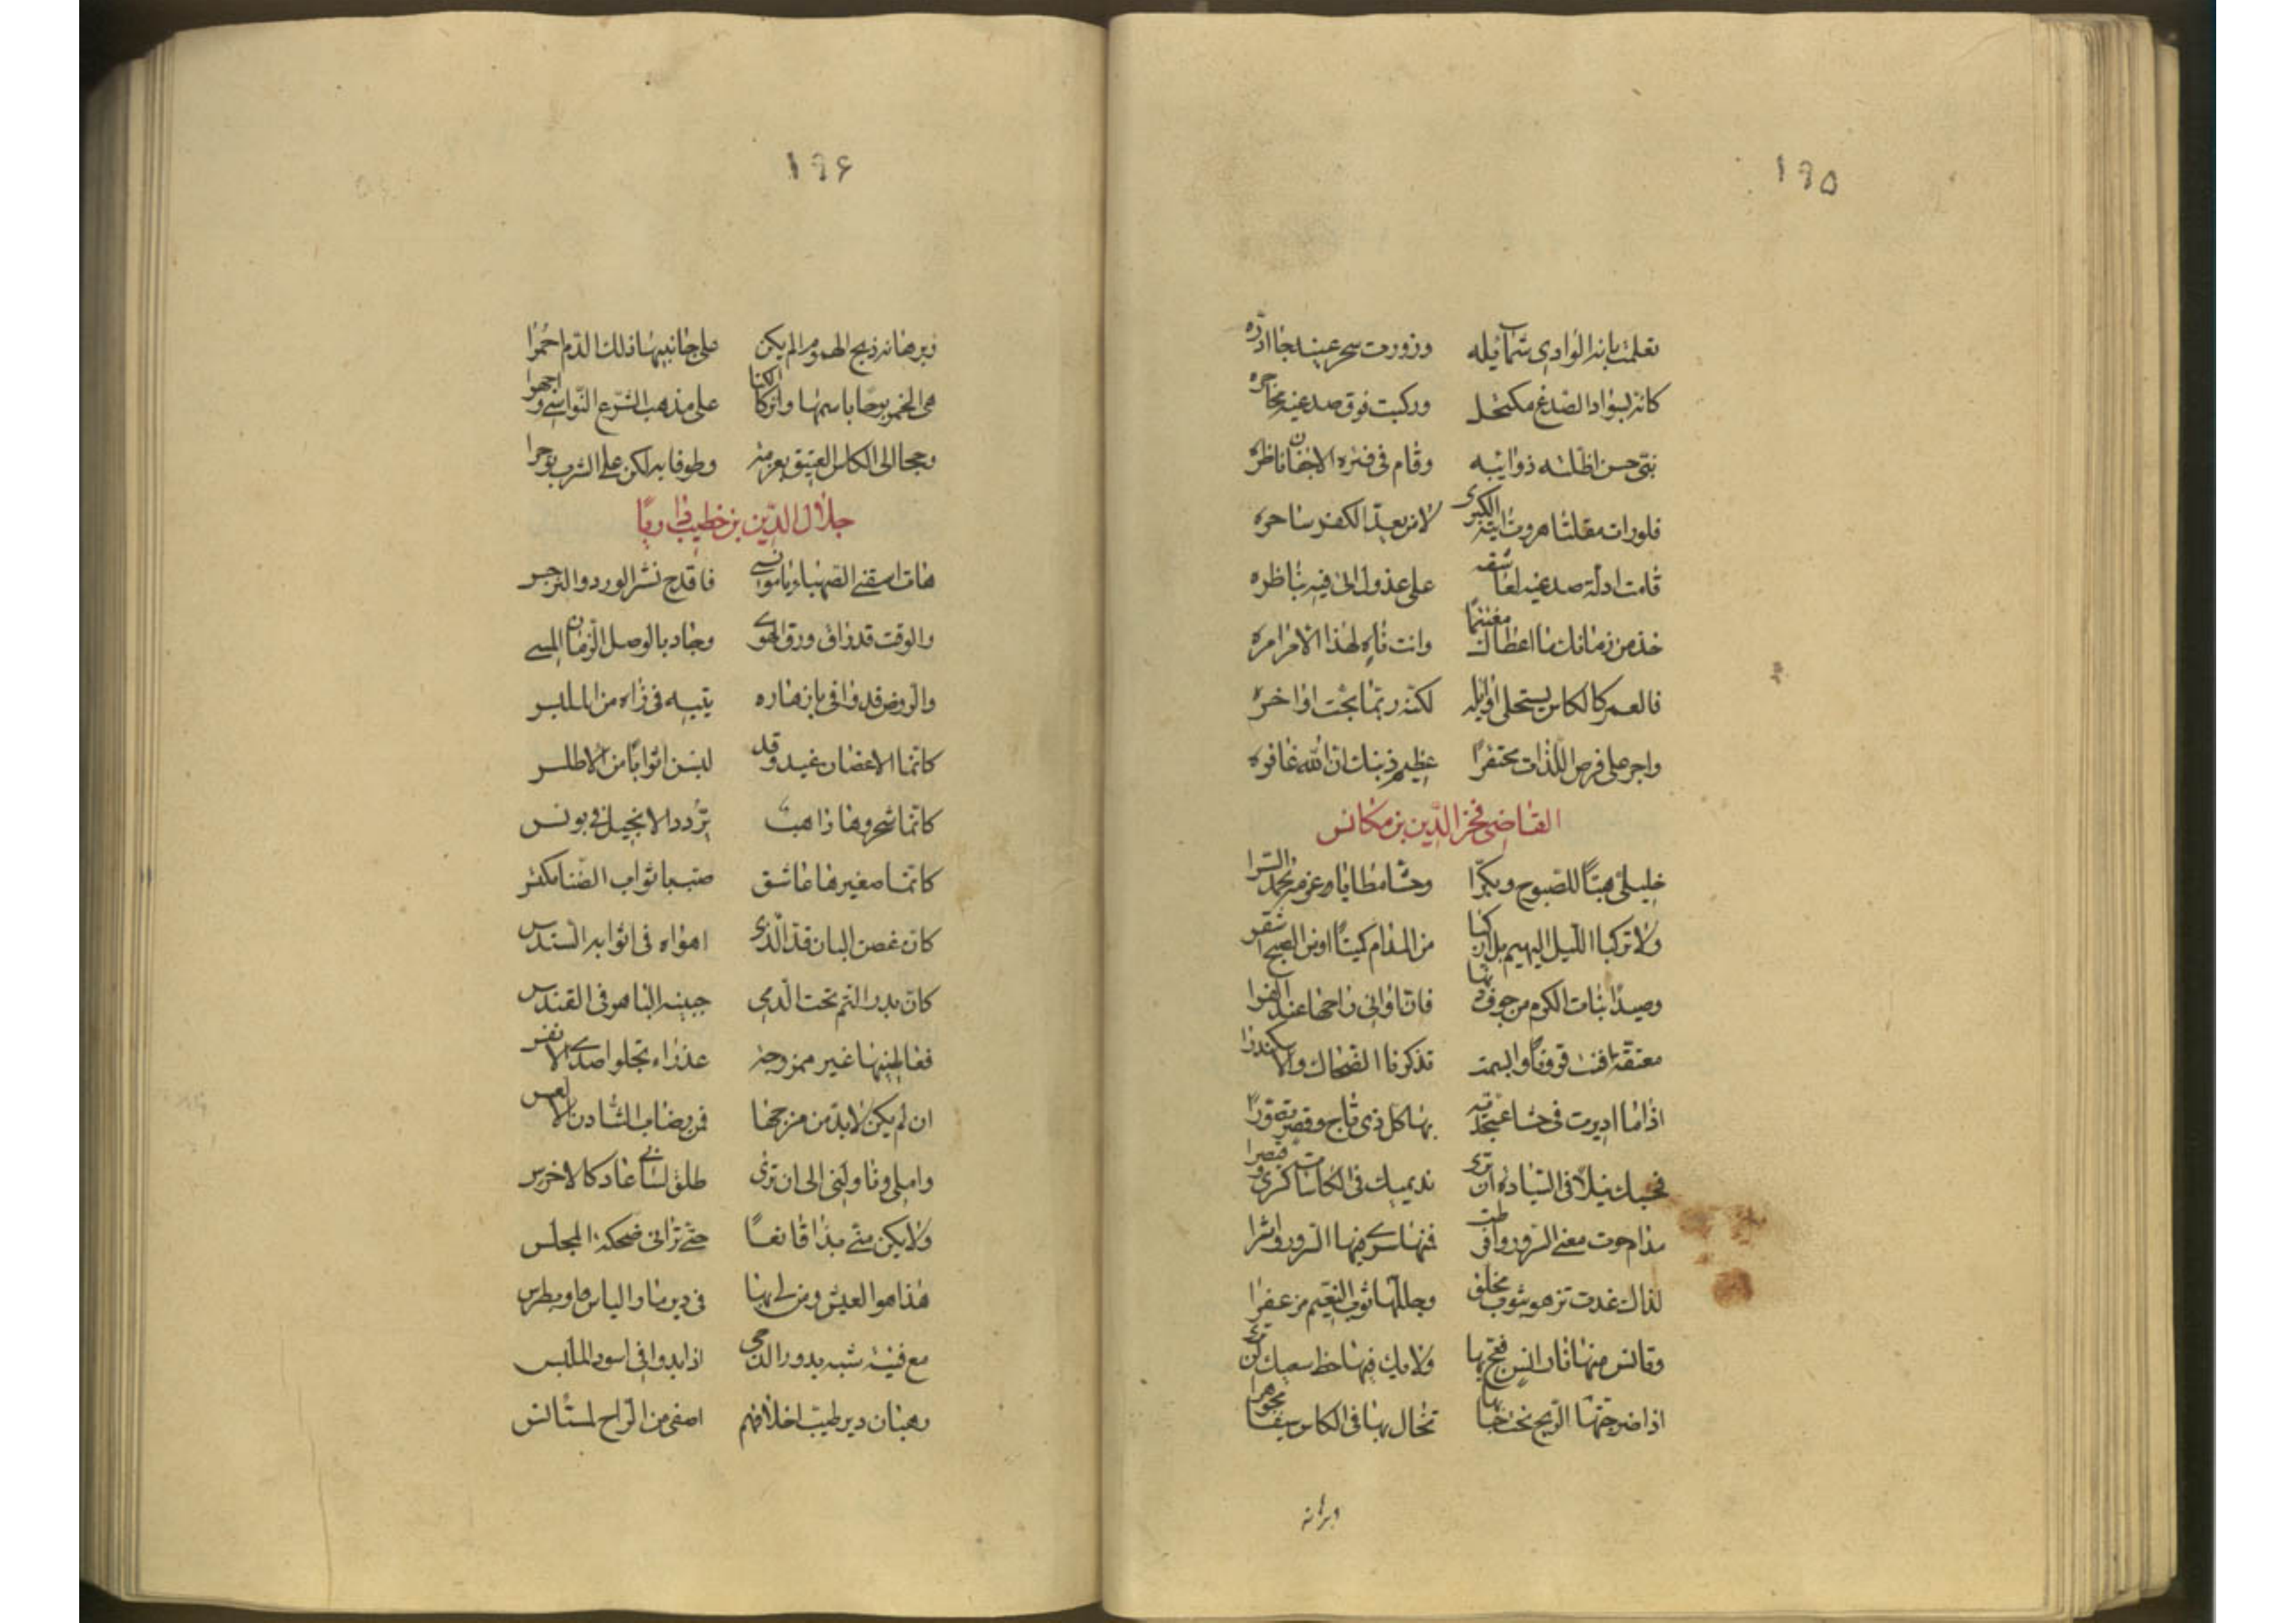 ١٩٥
تعلمت بانة الوادى شمايله وزورت سحر عينيه جاذره
كانه بسواد الصدغ مكتحل وركبت فوق صدغيه محاجره
نبى حسن اظلته ذوائبه وقام فى فترة الاجفان ناظره
فلو رات مقلتا هروت ايته الكبرى لامن بعد الكفر ساحره
قامت ادلة صدغيه لعاشقه على عذول اتى فيه يناظره
خذ من زمانك ما اعطاك مغتنما وانت ناه لهذا الامر امره
فالعمر كالكاس يستحلى اوايله لكنه ربما مجت اواخره
واجسر على فرص اللذات محتقرا عظيم ذنبك ان الله غافره
القاضى فخر الدين بن مكانس
خليلى هبا للصبوح وبكرا وحثا مطايا وعزمة نحمد السرا
ولا تركبا الليل البهيم بل اركبا من المدام كميتا او من الصبح اشقرا
وصيدا بنات الكرم من جوف دنها
معتقة افنت قرونا وابهمت تذكرنا الضحاك والاسكندرا
اذا ما اديرت فى حشا عسجدية بها كل ذى تاج وقصر تصورا
فحسبك نيلا فى السيادة ان ترى نديميك فى الكاسات كسرى وقيصرا
مدام حوت معنى السرور وافرطت
لذاك غدت تزهو بثوب مخلق وجللها ثوب النعيم مزعفرا
ولا يك فيها حظ سمعك كن ترى
تخال بها فى الكاس سيفا مجوهرا
وبرهانه
١٩۶
وبرهانه ذبح الهموم الم يكن على جانبيها ذلك الدم احمرا
هى الخمر بوحا باسمها واتركا الكنا على مذهب الشرع النواسى واجهرا
وحجا الى الكاس العتيق بعزمة وطوفا به لكن على الشرب بوجرا
جلال الدين بن خطيب داريا
هات اسقنى الصهباء يا مونسى فاقدح نشر الورد والنرجس
والوقت قد راق ورق الهوى وجاد بالوصل الزمان المسى
والروض قد وافى بازهاره يتيه فى زاه من الملبس
كانما الاغصان غيد وقد لبسن اثوابا من الاطلس
كانما شحروها راهب يردد الانجيل فى برنس
كانما صغيرها عاشق صب باثواب الضنا مكتس
كان غصن البان قد الذى اهواه فى اثوابه السندس
كان بدر التم تحت الدجى جبينه الباهر فى القندس
فعاطنيها غير ممزوجة عذراء تجلو اصدى الانفس
ان لم يكن لا بد من مزجها فمن رضاب الشادن الالعس
واملى وناولنى الى ان ترى طلق لسانى عاد كالاخرس
ولا يكن منى بذا قانعا حتى ترانى ضحكة المجلس
هذا هو العيش ومن لى بها فى دير ما
مع فتية شبه بدور الدجى اذا بدوا فى اسود الملبس
رهبان دير طيب اخلاقهم اصفى من الراح لمستانس